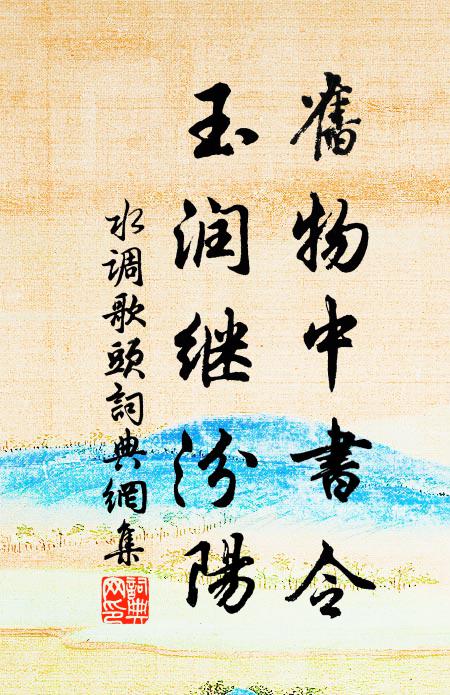 舊物中書令
玉润继汾陽
水调歌頭詞典網集
詞典网印